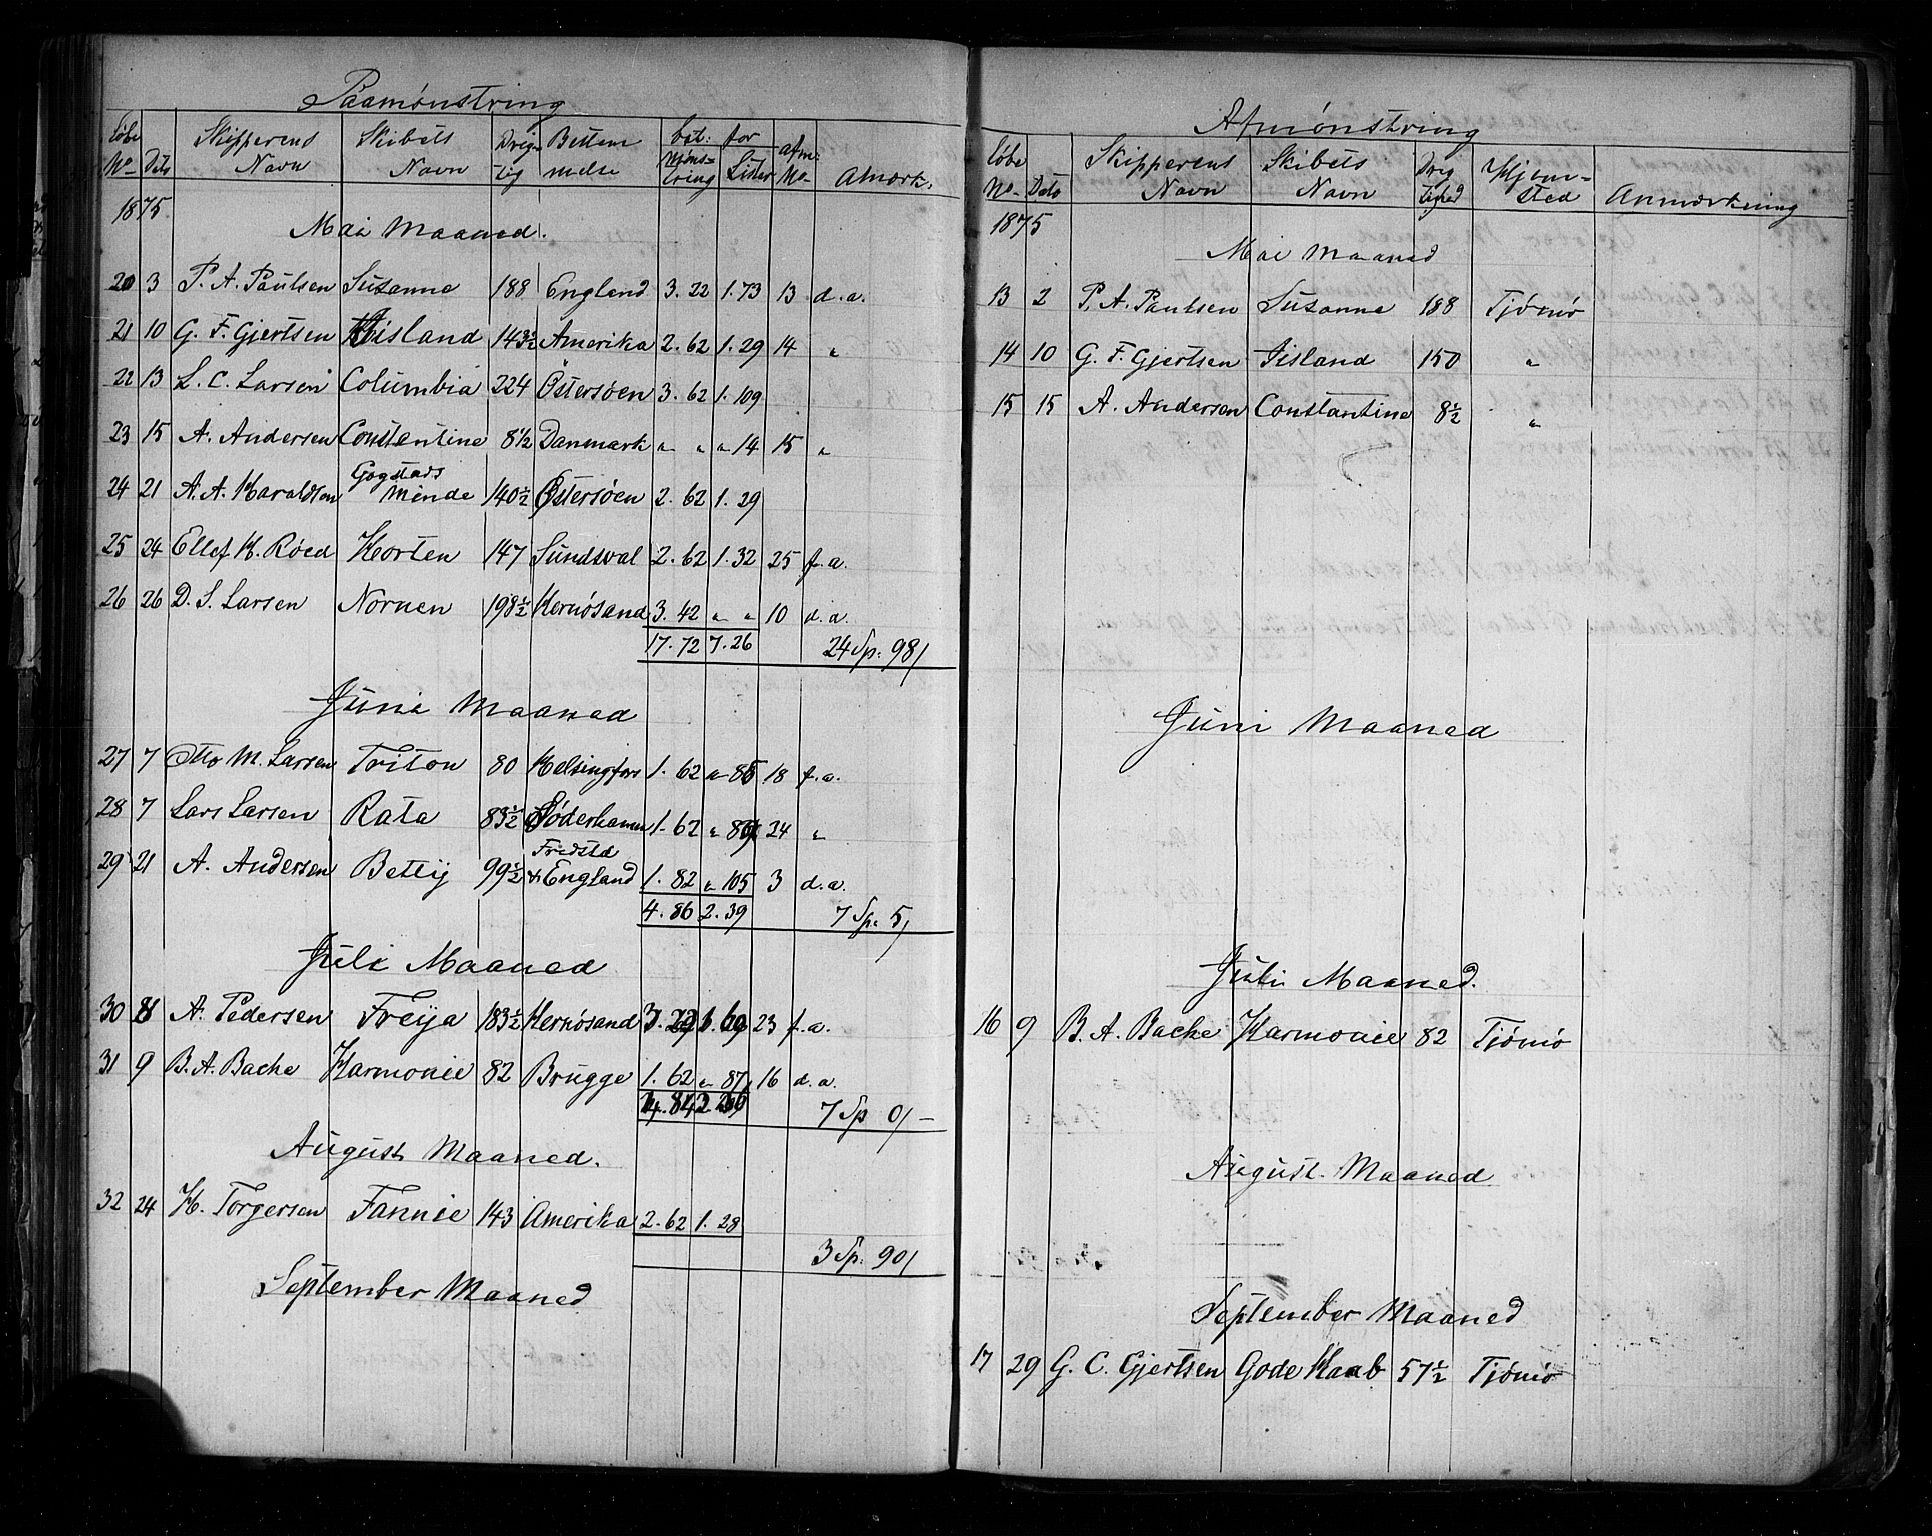 Paamønstring
Løbe No Dato Skipperens Navn Skibets Navn Drigtig Bestemmelse bet. for Mønstring Lister afm. No Amærk.
1875
Mai Maaned.
20 3 P. A. Paulsen Suzanne 188 England 3. 22 1. 73 13 d. a.
21 10 G. F. Gjertsen Iisland 143½ Amerika 2. 62 1. 29 14 "
22 13 L. C. Larsen Columbia 224 Østersøen 3. 62 1. 109
23 15 A. Andersen Constentine 8½ Danmark " " " 14 15 "
24 21 A. A. Haraldsen Gogstads Minde 140½ Østersøen 2. 62 1. 29
25 24 Ellef H. Røed Horten 147 Sundsval 2. 62 1. 32 25 f. a.
26 26 D. S. Larsen Nornen 198½ Hernøsand 3. 42 " " 10 d. a.
17. 72 7. 26 24 Sp: 98/
Juni Maaned
27 7 Otto M. Larsen Triton 80 Helsingfors 1. 62 " 85 18 f. a.
28 7 Lars Larsen Rata 83½ Søderhamn 1. 62 " 89 24 "
29 21 A. Andersen Betty 99½ Fredstd & England 1. 82 " 105 3 d. a.
4. 86 2. 39 7 Sp: 5/
Juli Maaned
30 8 A. Pedersen Freija 183½ Hernøsand 3. 22 1. 69 23 f. a.
31 9 B. A. Bache Harmonie 82 Brugge 1. 62 " 87 16 d. a.
4. 84 2. 36 7 Sp 0/-
August Maaned.
32 24 H. Torgersen Fannie 143 Amerika 2. 62 1. 28
3 Sp: 90/
September Maaned
Afmønstring
Løbe No Dato Skipperens Navn Skibets Navn Drigtighed Hjemsted Anmærkning
1875
Mai Maaned
13 2 P. A. Paulsen Suzanne 188 Tjømø
14 10 G. F. Gjertsen Iisland 150 "
15 15 A. Andersen Constantine 8½ "
Juni Maaned
Juli Maaned.
16 9 B. A. Bache Harmonie 82 Tjømø
August Maaned
September Maaned
17 29 G. C. Gjertsen Gode Haab 57½ Tjømø